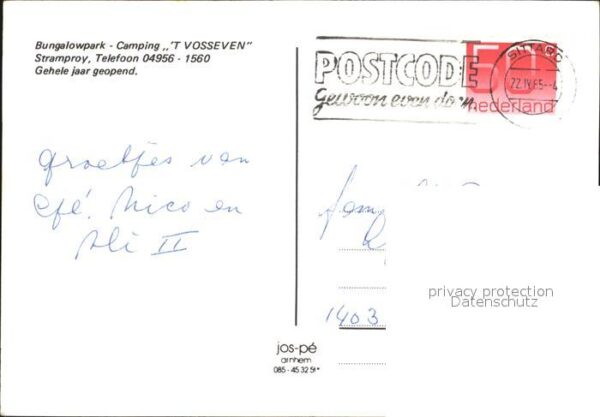 Bungalowpark - Camping ,,'T VOSSEVEN"
Stramproy, Telefoon 04956 - 1560
Gehele jaar geopend.
POSTCODE
Gewoon even doen.
SITTARD
22.IV.85--4
nederland
groetjes van
Efé. Nico en
Ali II
1403
privacy protection
Datenschutz
jos-pé
arnhem
085-45 32 51*